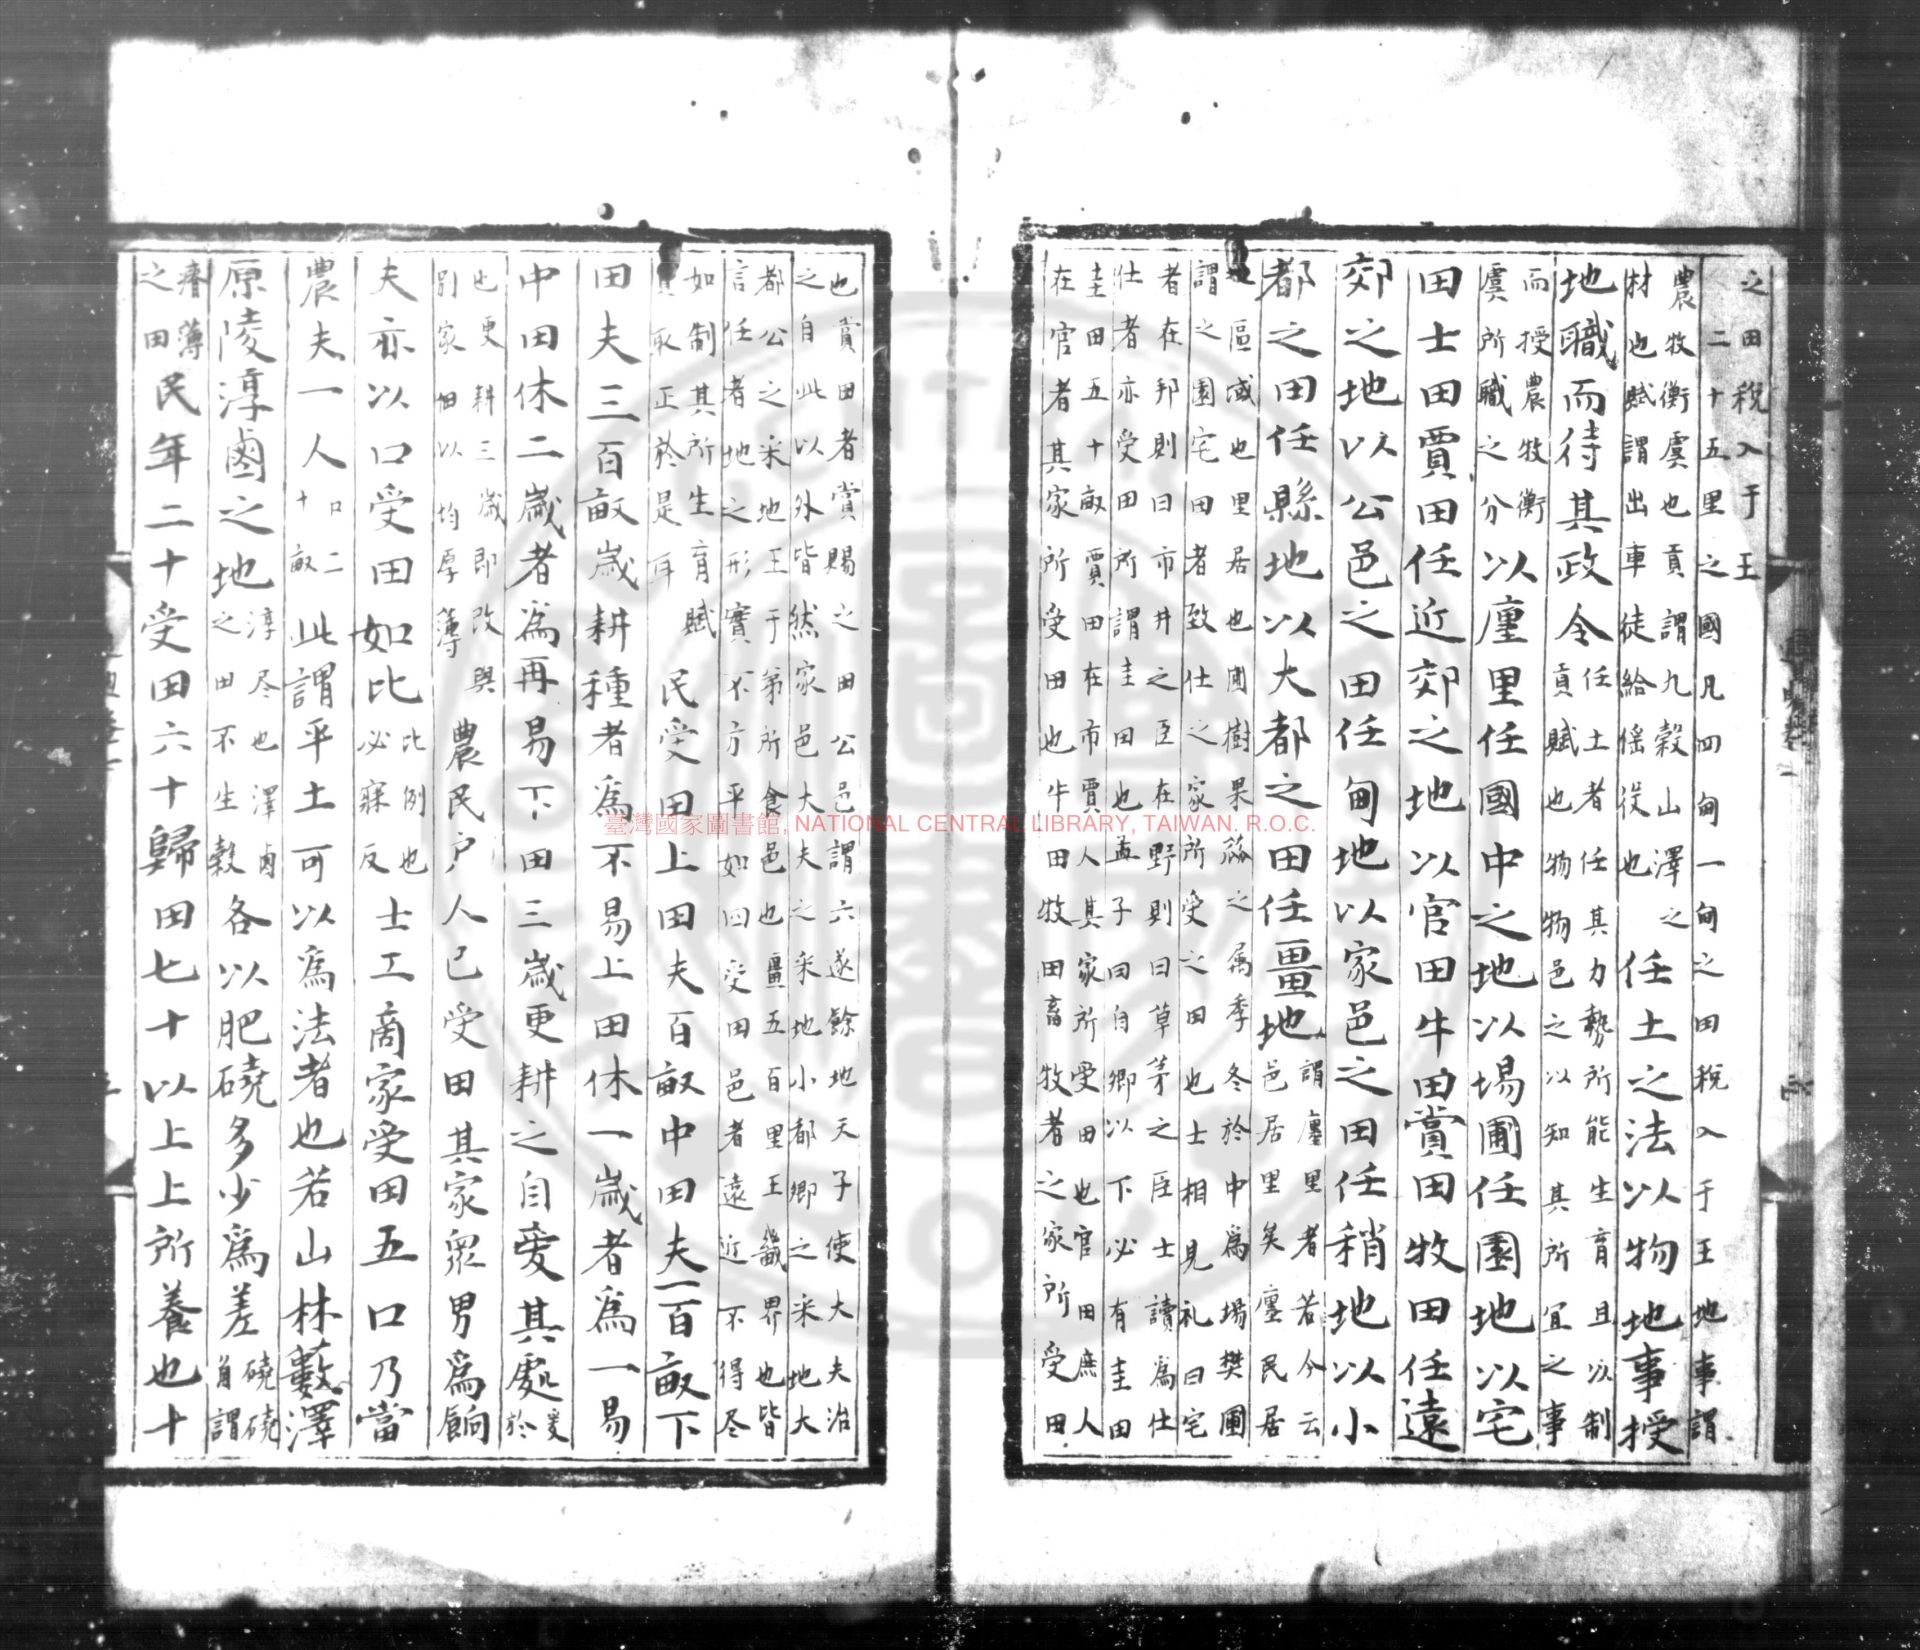 之田稅入于王
二十五里之國凡四甸一甸之田稅入于王地事謂
農牧衡虞也貢謂九穀山澤之
材也賦謂出車徒給徭役也
任土之法以物地事授
地職而待其政令
任土者任其力勢所能生育且以制
貢賦也物物邑之以知其所宜之事
而授農牧衡
虞所職之分
以廛里任國中之地以場圃任園地以宅
田士田賈田任近郊之地以官田牛田賞田牧田任遠
郊之地以公邑之田任甸地以家邑之田任稍地以小
都之田任縣地以大都之田任畺地
謂廛里者若今云
邑居里矣廛民居
之區域也里居也圃樹果蓏之属季冬於中為場樊圃
謂之園宅田者致仕之家所受之田也士相見礼曰宅
者在邦則曰市井之臣在野則曰草茅之臣士讀為仕
仕者亦受田所謂圭田也孟子曰自卿以下必有圭田
圭田五十畝賈田在市賈人其家所受田也官田庶人
在官者其家所受田也牛田牧田畜牧者之家所受田
也賞田者賞賜之田公邑謂六遂餘地天子使大夫治
之自此以外皆然家邑大夫之采地小都卿之采地大
都公之采地王于弟所食邑也畺五百里王畿界也皆
言任者地之形實不方平如曰受田邑者遠近不得尽
如制其所生育賦
貢取正於是耳
民受田上田夫百畝中田夫二百畝下
田夫三百畝歲耕種者為不易上田休一歲者為一易
中田休二歲者為再易下田三歲更耕之自爰其處
爰
於
也更耕三歲即改與
別家佃以均厚薄
農民戶人已受田其家衆男為餉
夫亦以口受田如比
比例也
必寐反
士工商家受田五口乃當
農夫一人
口二
十畝
此謂平土可以為法者也若山林藪澤
原陵淳鹵之地
淳尽也澤鹵
之田不生穀
各以肥磽多少為差
磽磽
角謂
瘠薄
之田
民年二十受田六十歸田七十以上上所養也十
臺灣國家圖書館, NATIONAL CENTRAL LIBRARY, TAIWAN, R.O.C.